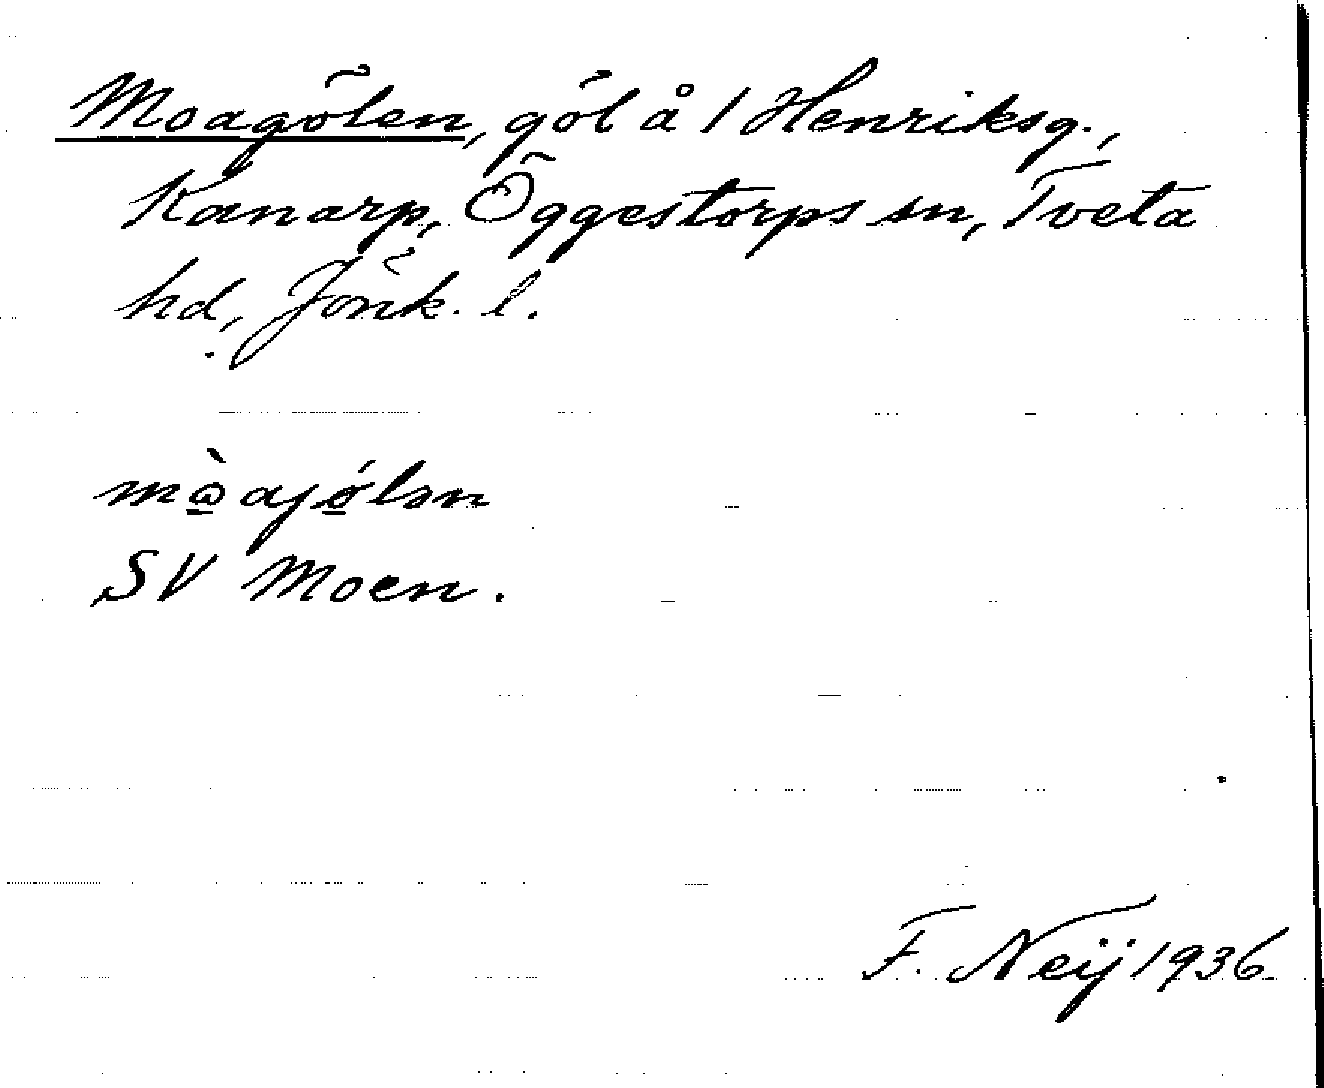 Moagölen, göl å 1 Henriksg.,
Kanarp, Öggestorps sn, Tveta
hd, Jönk. l.
mò̲ajö̲lən
SV Moen.
F. Neij 1936